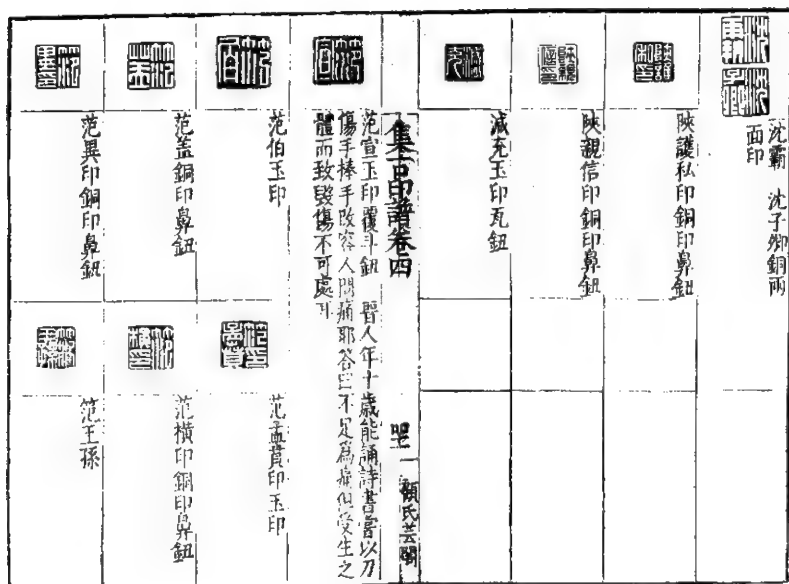 沈霸　沈子卿銅兩
面印
陝護私印銅印鼻鈕
陝親信印銅印鼻鈕
減充玉印瓦鈕
集古印譜卷四
四二
顧氏芸閣
范宣玉印覆斗鈕　晉人年十歲能誦詩書嘗以刀
傷手捧手改容人問痛耶答曰不足為痛但受生之
體而致毀傷不可處耳
范伯玉印
范孟賁印玉印
范蓋銅印鼻鈕
范橫印銅印鼻鈕
范異印銅印鼻鈕
范王孫